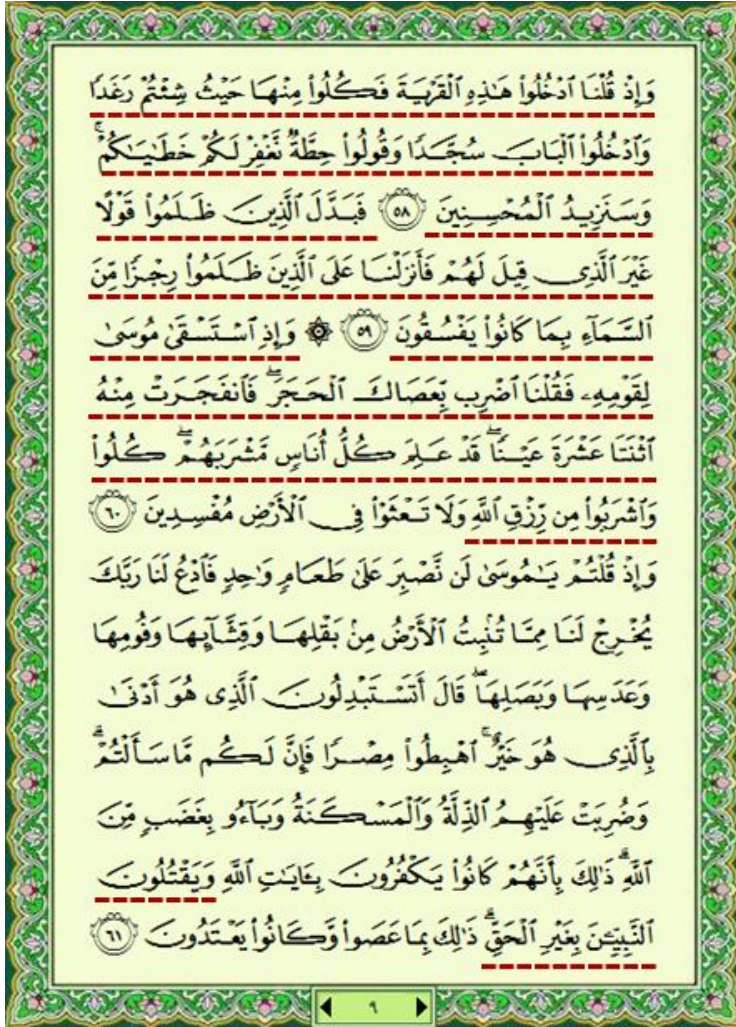 وَإِذْ قُلْنَا ٱدْخُلُوا۟ هَـٰذِهِ ٱلْقَرْيَةَ فَكُلُوا۟ مِنْهَا حَيْثُ شِئْتُمْ رَغَدًا
وَٱدْخُلُوا۟ ٱلْبَابَ سُجَّدًا وَقُولُوا۟ حِطَّةٌ نَّغْفِرْ لَكُمْ خَطَـٰيَـٰكُمْ ۚ
وَسَنَزِيدُ ٱلْمُحْسِنِينَ ﴿٥٨﴾ فَبَدَّلَ ٱلَّذِينَ ظَلَمُوا۟ قَوْلًا
غَيْرَ ٱلَّذِى قِيلَ لَهُمْ فَأَنزَلْنَا عَلَى ٱلَّذِينَ ظَلَمُوا۟ رِجْزًا مِّنَ
ٱلسَّمَآءِ بِمَا كَانُوا۟ يَفْسُقُونَ ﴿٥٩﴾ ۞ وَإِذِ ٱسْتَسْقَىٰ مُوسَىٰ
لِقَوْمِهِۦ فَقُلْنَا ٱضْرِب بِّعَصَاكَ ٱلْحَجَرَ ۖ فَٱنفَجَرَتْ مِنْهُ
ٱثْنَتَا عَشْرَةَ عَيْنًا ۖ قَدْ عَلِمَ كُلُّ أُنَاسٍ مَّشْرَبَهُمْ ۖ كُلُوا۟
وَٱشْرَبُوا۟ مِن رِّزْقِ ٱللَّهِ وَلَا تَعْثَوْا۟ فِى ٱلْأَرْضِ مُفْسِدِينَ ﴿٦٠﴾
وَإِذْ قُلْتُمْ يَـٰمُوسَىٰ لَن نَّصْبِرَ عَلَىٰ طَعَامٍ وَٰحِدٍ فَٱدْعُ لَنَا رَبَّكَ
يُخْرِجْ لَنَا مِمَّا تُنۢبِتُ ٱلْأَرْضُ مِنۢ بَقْلِهَا وَقِثَّآئِهَا وَفُومِهَا
وَعَدَسِهَا وَبَصَلِهَا ۖ قَالَ أَتَسْتَبْدِلُونَ ٱلَّذِى هُوَ أَدْنَىٰ
بِٱلَّذِى هُوَ خَيْرٌ ۚ ٱهْبِطُوا۟ مِصْرًا فَإِنَّ لَكُم مَّا سَأَلْتُمْ ۗ
وَضُرِبَتْ عَلَيْهِمُ ٱلذِّلَّةُ وَٱلْمَسْكَنَةُ وَبَآءُو بِغَضَبٍ مِّنَ
ٱللَّهِ ۗ ذَٰلِكَ بِأَنَّهُمْ كَانُوا۟ يَكْفُرُونَ بِـَٔايَـٰتِ ٱللَّهِ وَيَقْتُلُونَ
ٱلنَّبِيِّـۧنَ بِغَيْرِ ٱلْحَقِّ ۗ ذَٰلِكَ بِمَا عَصَوا۟ وَّكَانُوا۟ يَعْتَدُونَ ﴿٦١﴾
٩